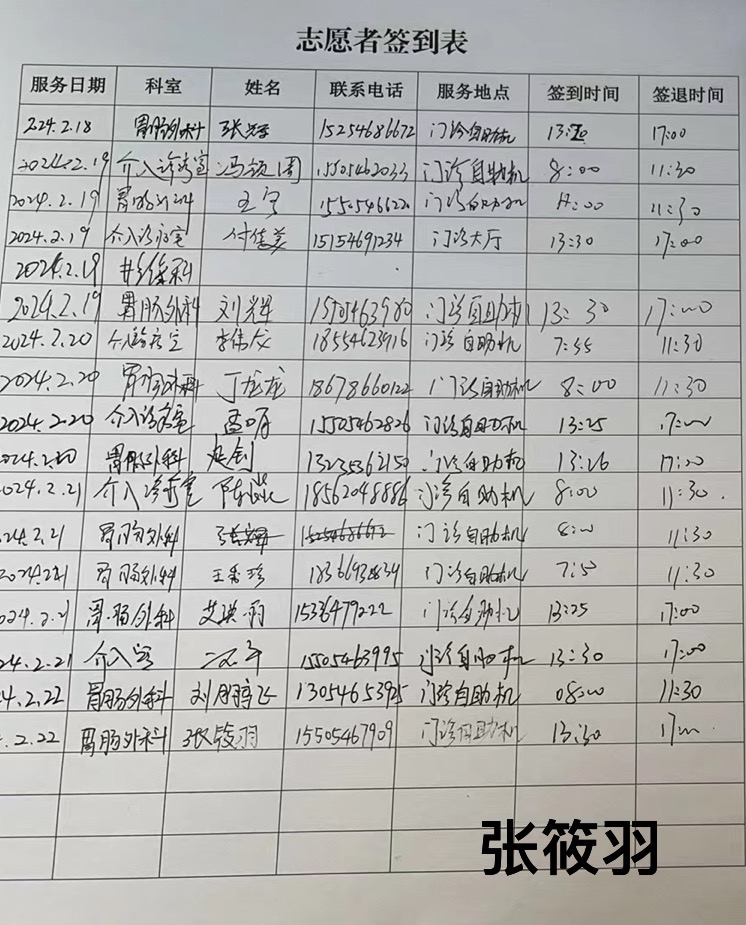 志愿者签到表
服务日期 科室 姓名 联系电话 服务地点 签到时间 签退时间
224.2.18 胃肠外科 15254686672 门诊自助机 17:00
2024.2.19 介入诊疗室 冯领周 15505462033 门诊自助机 8:00 11:30
2024.2.19 胃肠外科 王宁 门诊自助机 11:30
2024.2.19 介入诊疗室 付佳美 15154691234 门诊大厅 13:30 17:00
2024.2.19
2024.2.19 胃肠外科 刘光辉 门诊自助机 13:30 17:00
2024.2.20 介入诊疗室 18554623916 门诊自助机 7:55 11:30
2024.2.20 胃肠外科 丁龙龙 18678660122 门诊自助机 8:00 11:30
2024.2.20 介入诊疗室 孟明 15505462826 门诊自助机 13:25 17:00
2024.2.20 胃肠外科 门诊自助机 13:26 17:00
2024.2.21 介入诊疗室 18562048886 门诊自助机 8:00 11:30
24.2.21 胃肠外科 15254686672 门诊自助机 8:00 11:30
胃肠外科 王秀珍 门诊自助机 7:50 11:30
024.2.21 胃肠外科 艾琪羽 门诊自助机 13:25 17:00
24.2.21 介入室 15505463995 门诊自助机 13:30 17:00
4.2.22 胃肠外科 刘鹏飞 13054653925 门诊自助机 08:00 11:30
.2.22 胃肠外科 张筱羽 15505467909 门诊自助机 13:30 17:00
张筱羽